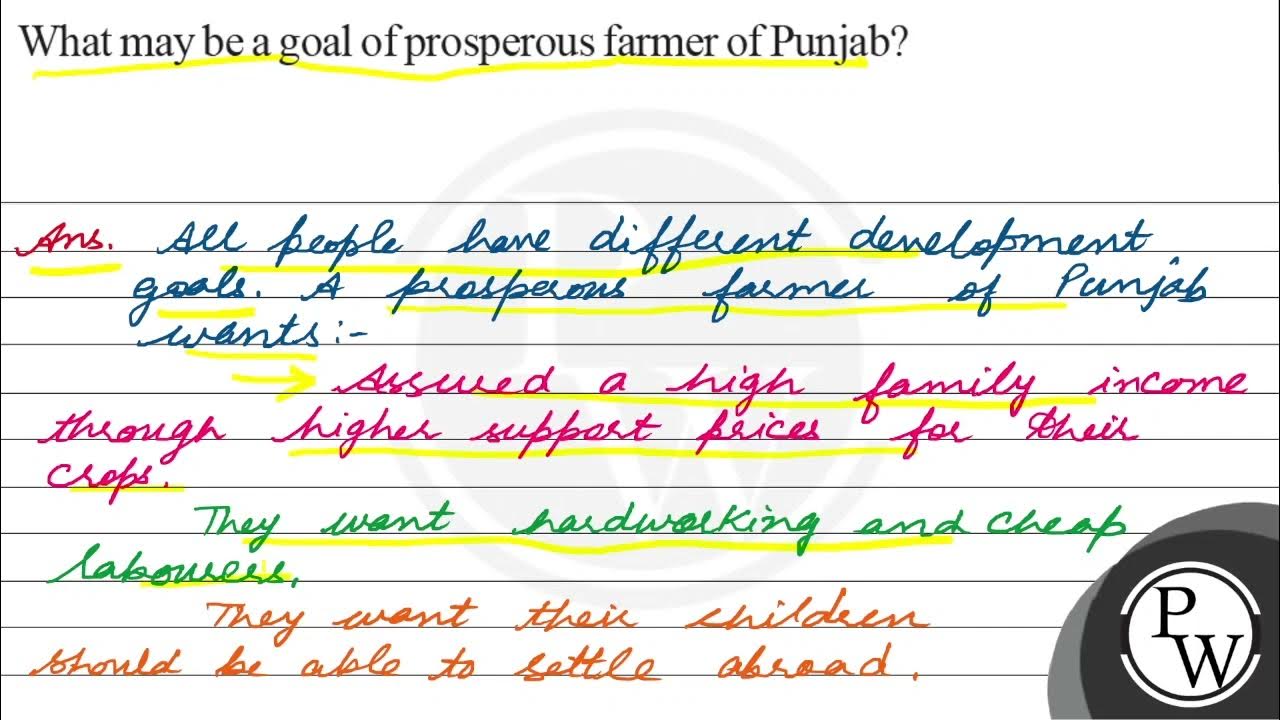 What may be a goal of prosperous farmer of Punjab?
Ans. All people have different development
goals. A prosperous farmer of Punjab
wants:-
→ Assured a high family income
through higher support prices for their
crops.
They want hardworking and cheap
labourers.
They want their children
should be able to settle abroad.
P
W